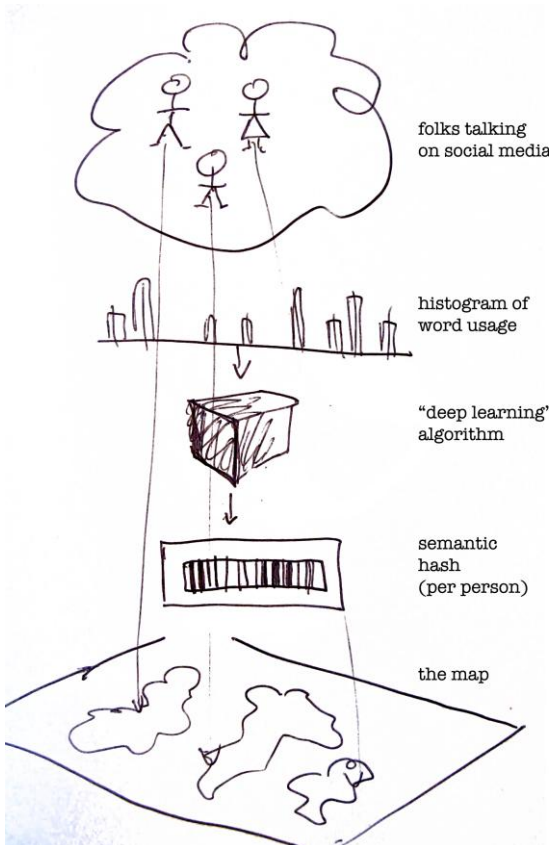 folks talking
on social media
histogram of
word usage
"deep learning"
algorithm
semantic
hash
(per person)
the map